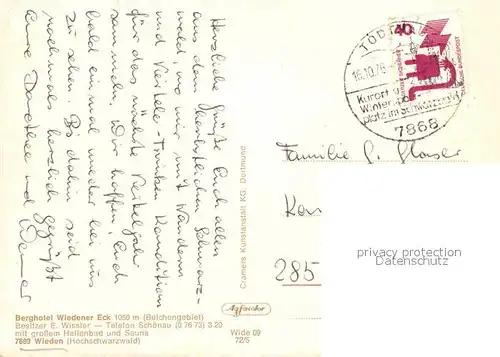 Herzliche Grüße Euch allen
aus dem herbstlichen Schwarz-
wald, wo wir mit Wandern
und Viertele-Trinken Kondition
für das nächste Vierteljahr
sammeln. Wir hoffen, Euch
bald einmal wieder bei uns
zu sehen. Bis dahin seid
nochmals herzlich gegrüßt
Eure Dorothee und Werner
Berghotel Wiedener Eck 1050 m (Belchengebiet)
Besitzer E. Wissler — Telefon Schönau (0 76 73) 3 20
mit großem Hallenbad und Sauna
7869 Wieden (Hochschwarzwald)
Cramers Kunstanstalt KG. Dortmund
Agfacolor
Wide 09
72/5
TODT
16.10.76
Kurort u.
Wintersport-
platz im Schwarzwald
7868
40
DEUTSCHE BUNDESPOST
Familie G. Glaser
285
privacy protection
Datenschutz